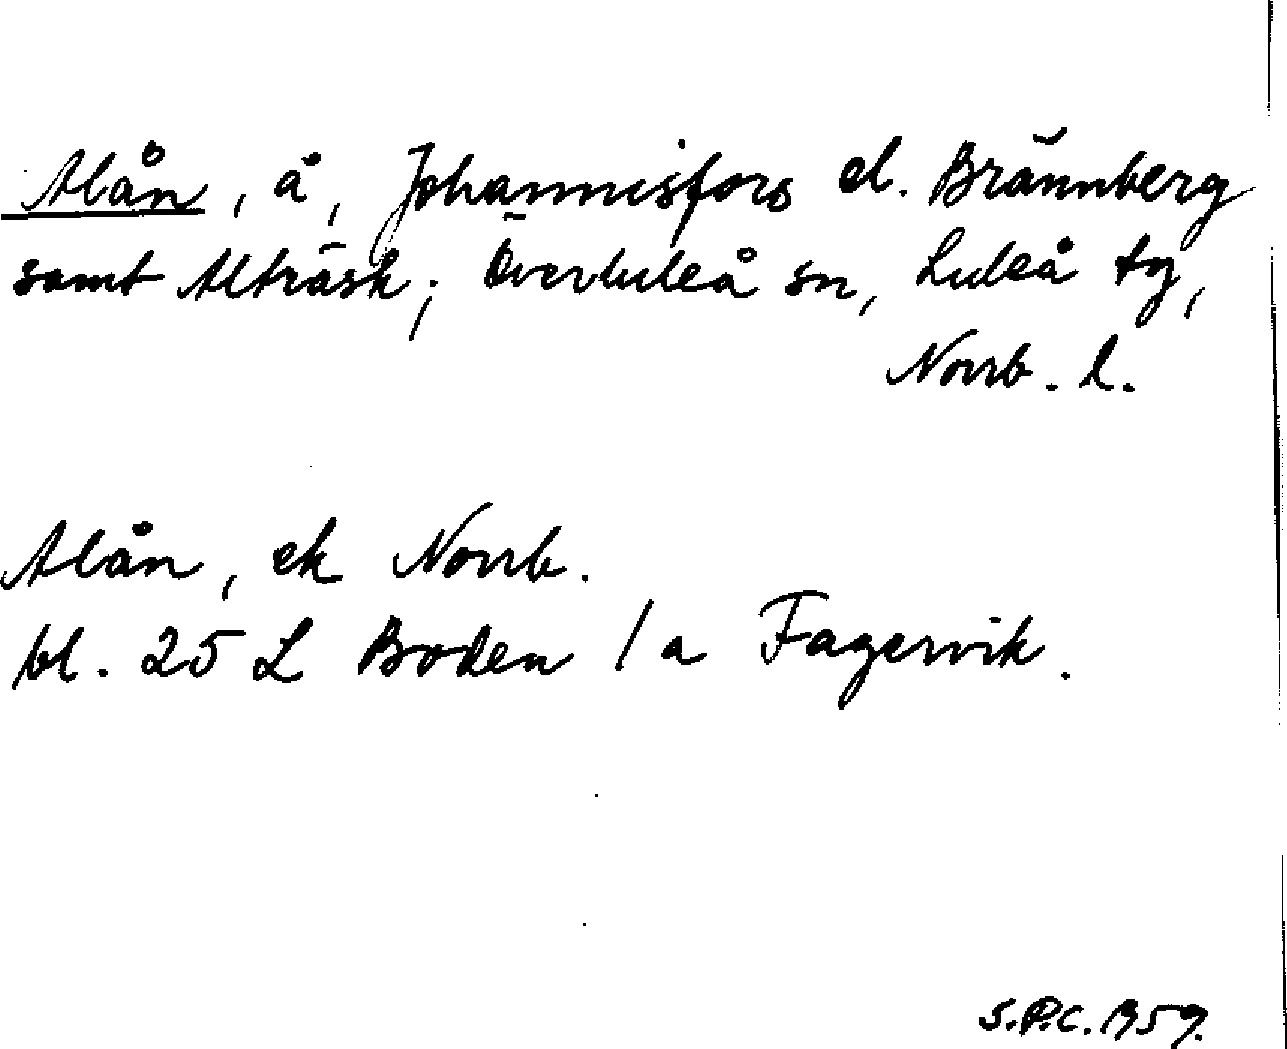 Alån, å, Johannisfors el. Brännberg
samt Alträsk; Överluleå sn, Luleå tg,
Norrb. l.
Alån, ek Norrb.
bl. 25 L Boden / a Fagervik.
S.P.C. 1959.